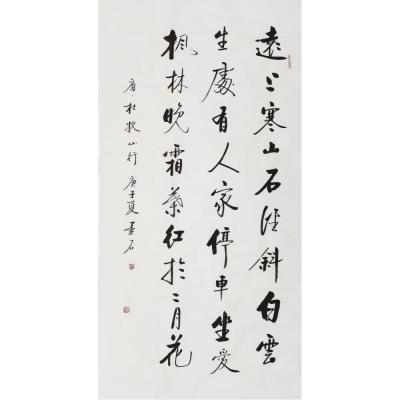 遠上寒山石徑斜白雲
生處有人家停車坐愛
楓林晚霜葉紅於二月花
唐·杜牧山行 庚子夏 石